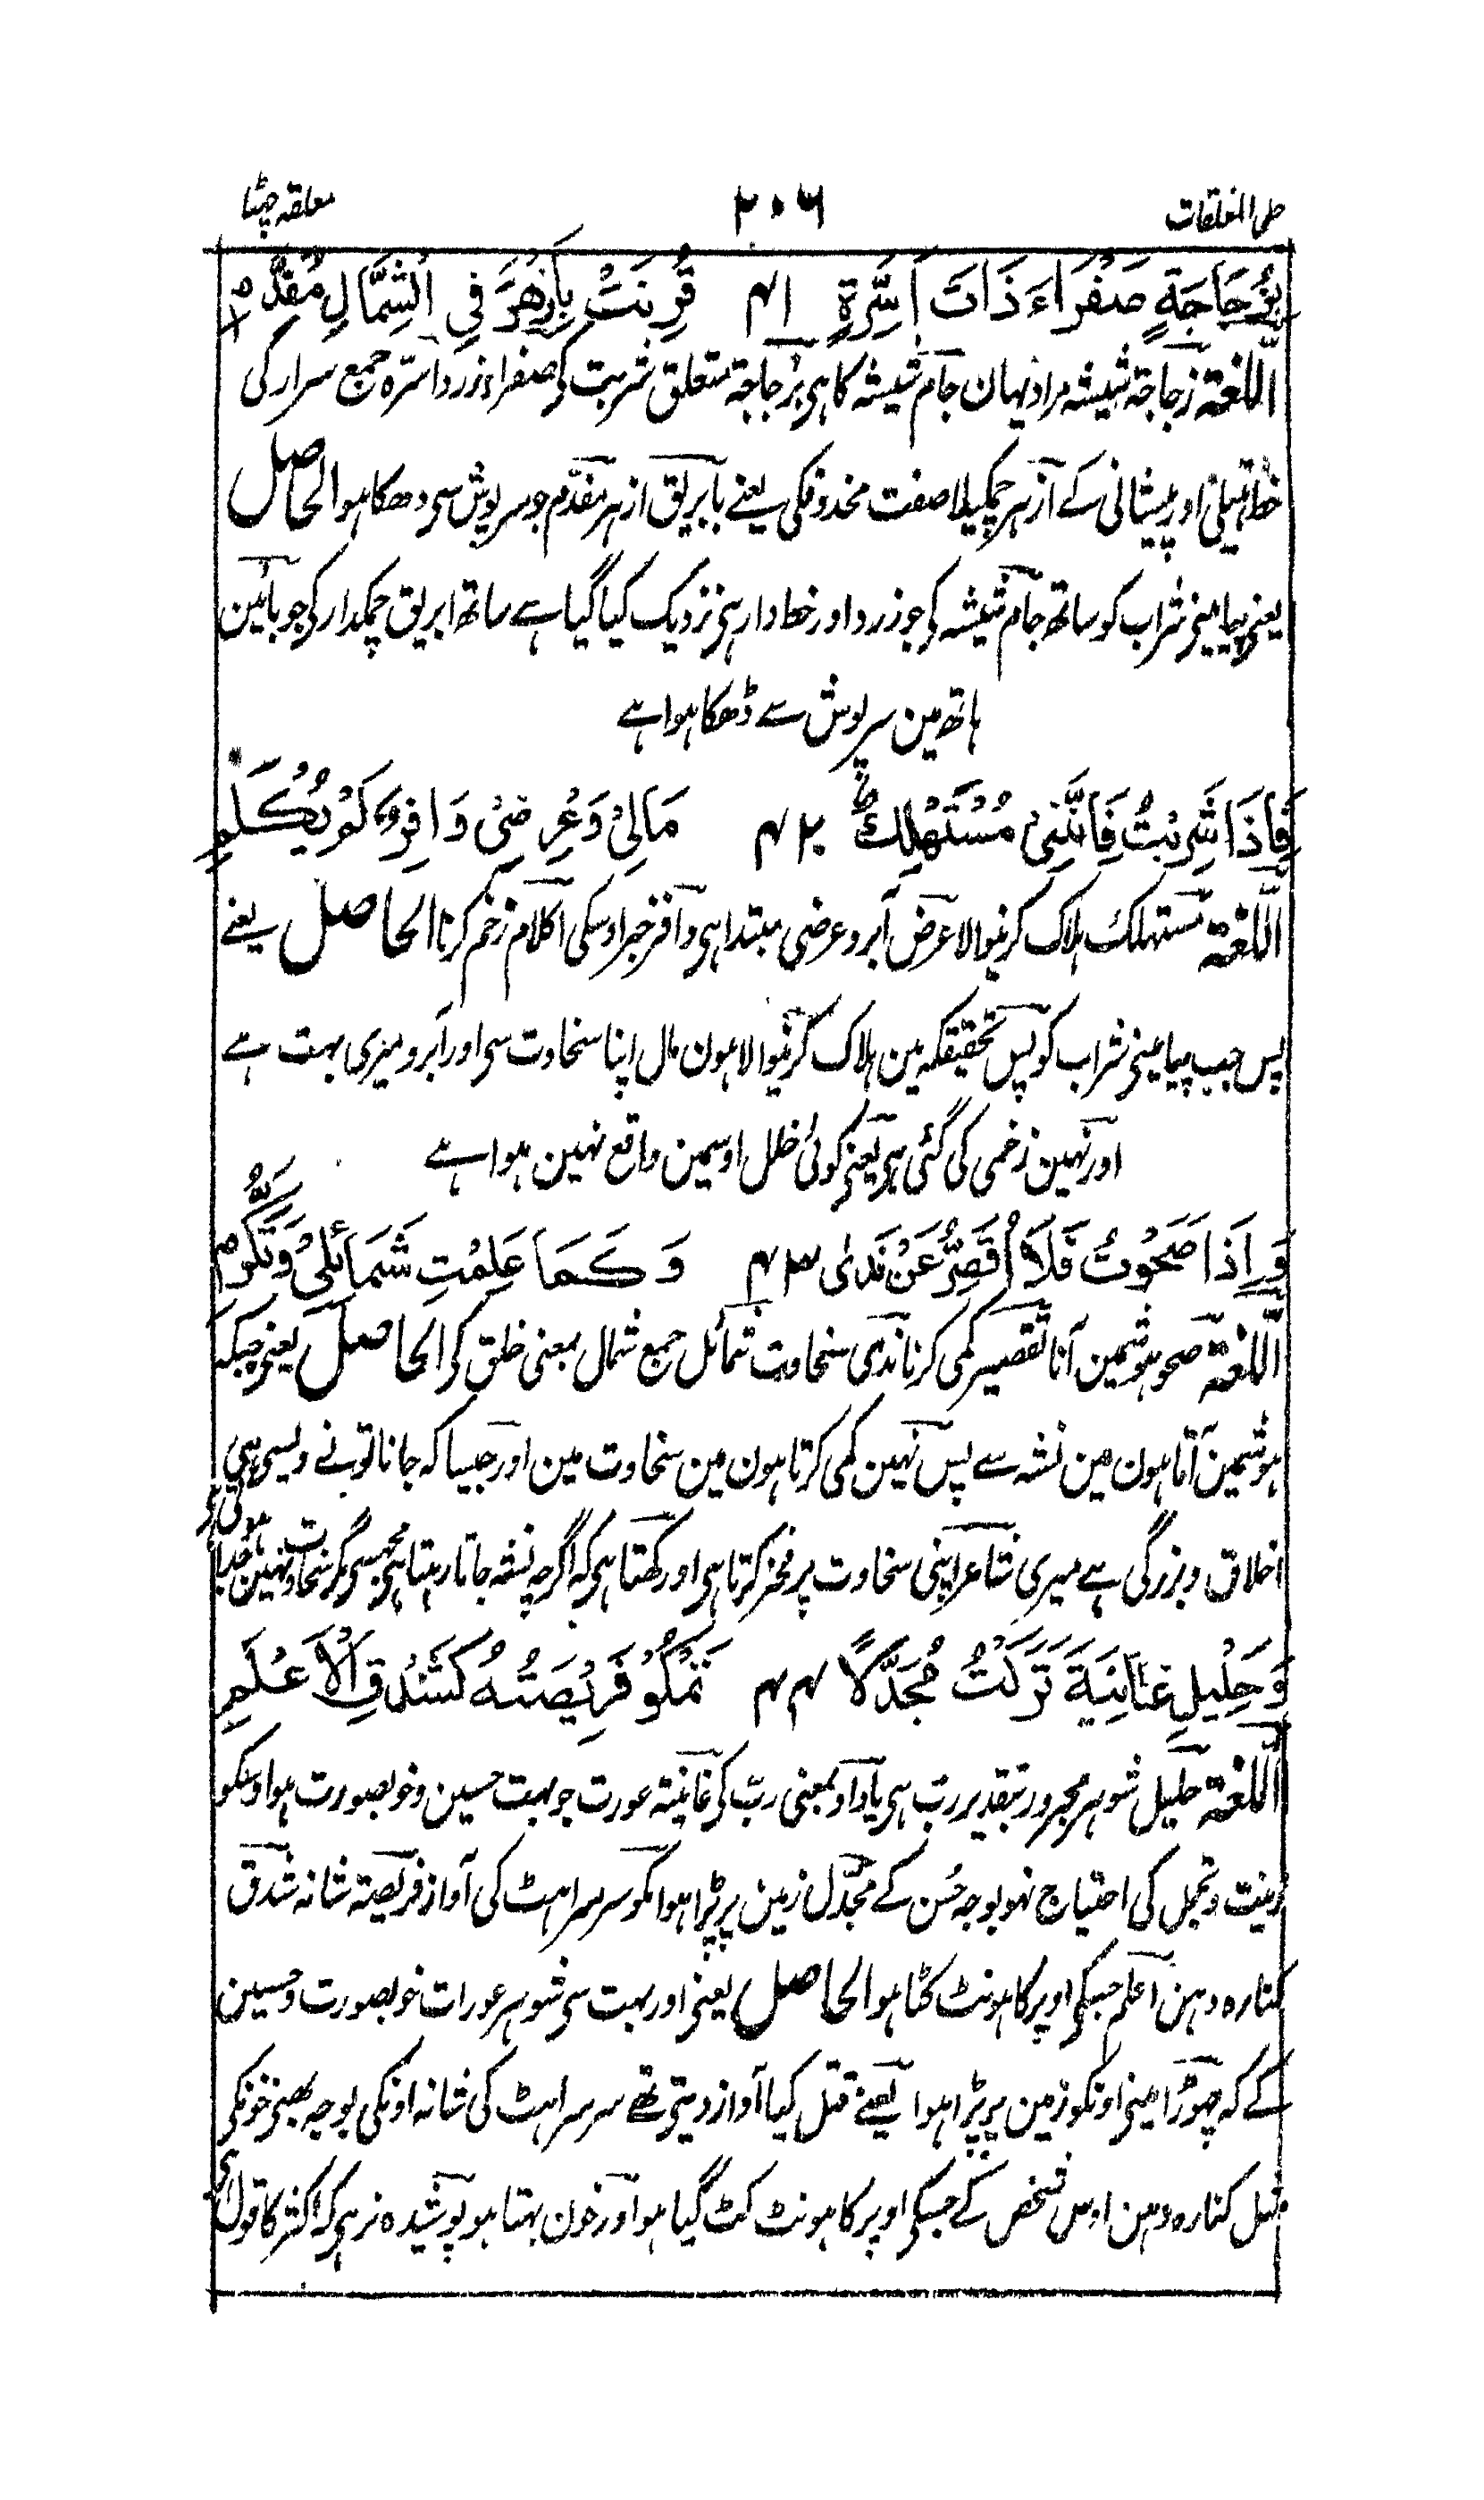 حل المعلقات ۲۰۶ معلقہ چھٹا
بِزُجَاجَةٍ صَفْرَاءَ ذَاتَ اَسِّرَةٍ ۴۱ قُرِنَتْ بِاَزْهَرَ فِي الشِّمَالِ مُفَدَّمٖ
اللغة زجاجة شیشہ مراد یہان جام شیشہ کا ہی بزجاجة متعلق شربت کے صفراء زرد اسّرہ جمع سرار کی
خط ہتیلی اور پیشانی کے ازہر چمکیلا صفت محذوفکی یعنے بابریق ازہر مفدّم جو سرپوش سی ڈھکا ہو الحاصل
یعنی پیا مینی شراب کو ساتھ جام شیشہ کی جو زرد اور خطدار ہی نزدیک کیا گیا ہے ساتھ ابریق چمکدار کی جو بائین
ہاتھ مین سرپوش سے ڈھکا ہوا ہے
فَاِذَا شَرِبْتُ فَاِنَّنِيْ مُسْتَهْلِكٌ ۴۲ مَالِيْ وَعِرْضِيْ وَافِرٌ لَمْ يُكْلَمِ
اللغة مستہلك ہلاک کرنیوالا عرض آبرو عرضی مبتدا ہی وافر خبر اوسکی اکلام زخم کرنا الحاصل یعنے
پس جب پیا مینی شراب کو پس تحقیقکہ مین ہلاک کرنیوالا ہون مال اپنا سخاوت سی اور آبرو میری بہت ہے
اور نہین زخمی کی گئی ہی یعنی کوئی خلل اوسمین واقع نہین ہوا ہے
وَاِذَا صَحَوْتُ فَلَا اُقَصِّرُ عَنْ نَدًى ۴۳ وَكَمَا عَلِمْتِ شَمَائِلِيْ وَتَكَرُّمِ
اللغة صحو ہوشمین آنا تقصیر کمی کرنا ندی سخاوت شمائل جمع شمال بمعنی خلق کی الحاصل یعنی جبکہ
ہوشمین آتا ہون مین نشہ سے پس نہین کمی کرتا ہون مین سخاوت مین اور جیسا کہ جانا تونے ویسی ہی
اخلاق و بزرگی ہے میری شاعر اپنی سخاوت پر فخر کرتا ہی اور کہتا ہی کہ اگرچہ نشہ جاتا رہتا ہی مجھسی مگر سخاوت نہین جدا ہوتی
وَحَلِيْلِ غَانِيَةٍ تَرَكْتُ مُجَدَّلًا ۴۴ تَمْكُوْ فَرِيْصَتُهُ كَشَدْقِ الْاَعْلَمِ
اللغة حلیل شوہر مجرور بتقدیر ربّ ہی یا واو بمعنی ربّ کی غانیة عورت جو بہت حسین و خوبصورت ہو اوسکو
زینت و تجمل کی احتیاج نہو بوجہ حُسن کے مجدّل زمین پر پڑا ہوا مکو سرسراہٹ کی آواز فریصة شانہ شدق
کنارہ دہن اعلم جسکی اوپر کا ہونٹ کٹا ہو الحاصل یعنی اور بہت سی شوہر عورات خوبصورت و حسین
کے کہ چھوڑا مینی اونکو زمین پر پڑا ہوا یعنے قتل کیا آواز دیتی تھے سرسراہٹ کی شانہ اونکی بوجہ بہنی خونکی
مثل کنارہ دہن اوس شخص کے جسکی اوپر کا ہونٹ کٹ گیا ہو اور خون بہتا ہو پوشیدہ نرہی کہ اکثر کا قول ہی